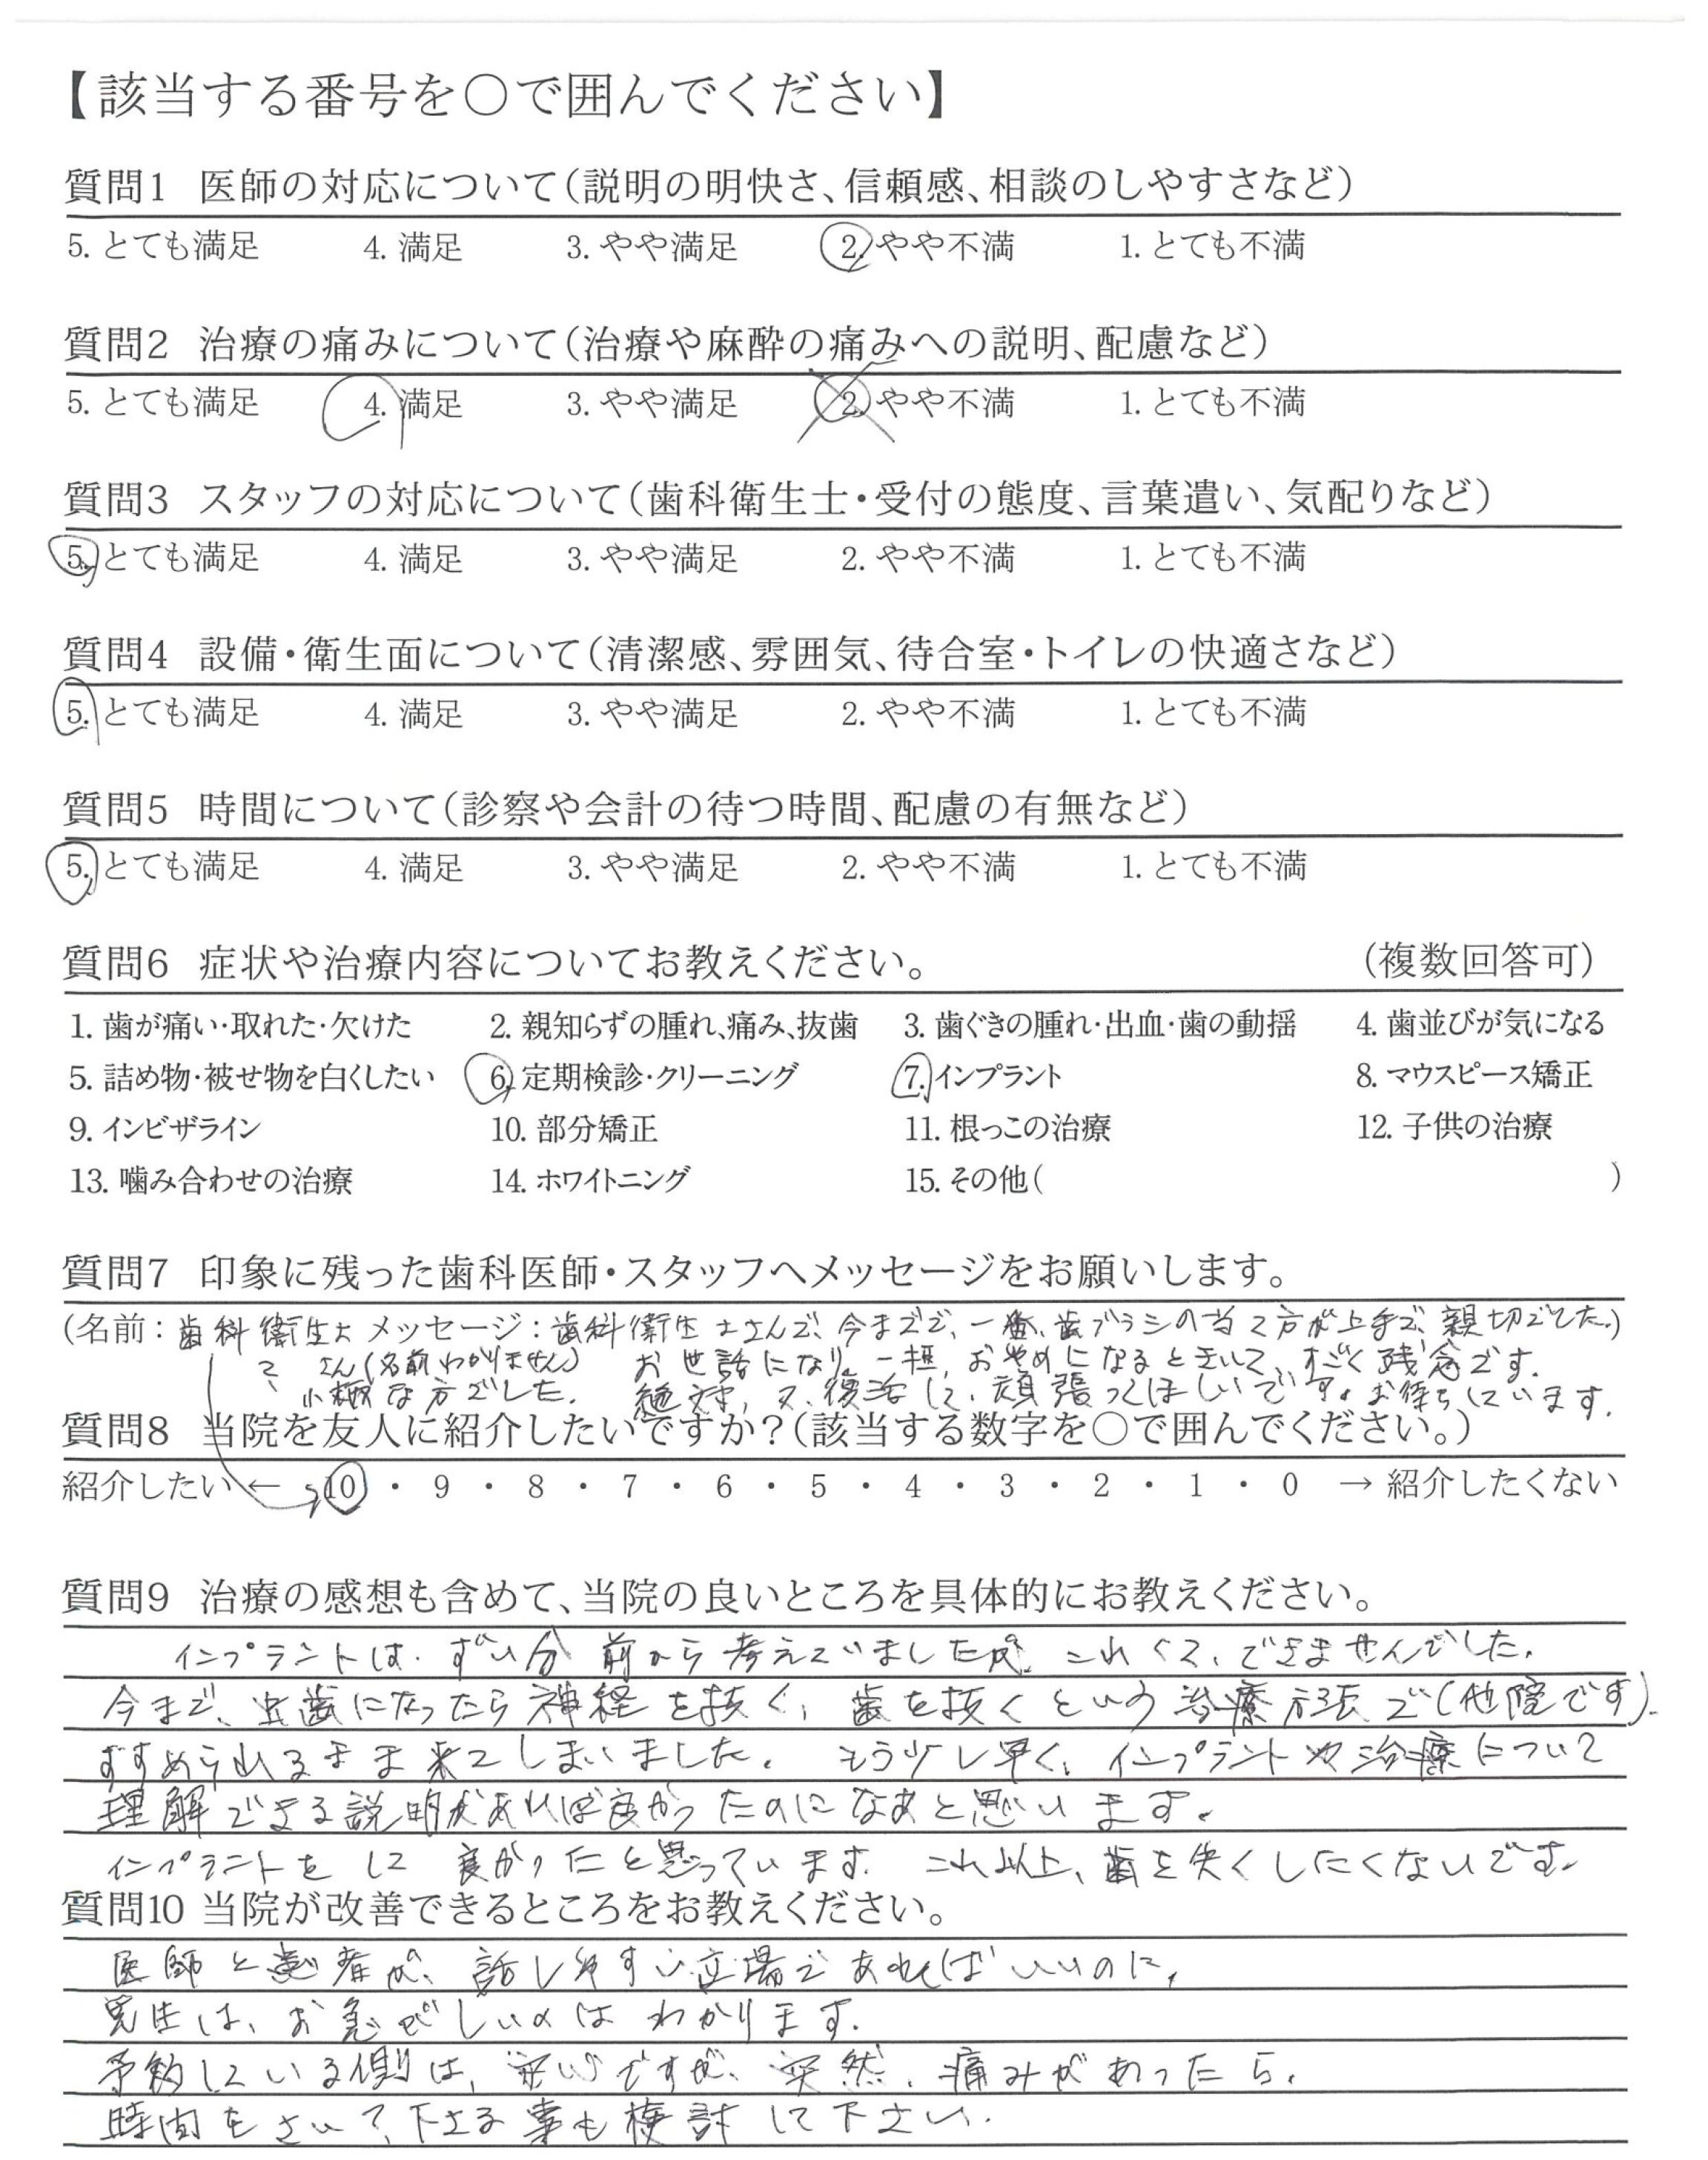 【該当する番号を○で囲んでください】
質問1 医師の対応について(説明の明快さ、信頼感、相談のしやすさなど)
5. とても満足 4. 満足 3. やや満足 2. やや不満 1. とても不満
質問2 治療の痛みについて(治療や麻酔の痛みへの説明、配慮など)
5. とても満足 4. 満足 3. やや満足 2. やや不満 1. とても不満
質問3 スタッフの対応について(歯科衛生士・受付の態度、言葉遣い、気配りなど)
5. とても満足 4. 満足 3. やや満足 2. やや不満 1. とても不満
質問4 設備・衛生面について(清潔感、雰囲気、待合室・トイレの快適さなど)
5. とても満足 4. 満足 3. やや満足 2. やや不満 1. とても不満
質問5 時間について(診察や会計の待つ時間、配慮の有無など)
5. とても満足 4. 満足 3. やや満足 2. やや不満 1. とても不満
質問6 症状や治療内容についてお教えください。 (複数回答可)
1. 歯が痛い・取れた・欠けた 2. 親知らずの腫れ、痛み、抜歯 3. 歯ぐきの腫れ・出血・歯の動揺 4. 歯並びが気になる
5. 詰め物・被せ物を白くしたい 6. 定期検診・クリーニング 7. インプラント 8. マウスピース矯正
9. インビザライン 10. 部分矯正 11. 根っこの治療 12. 子供の治療
13. 噛み合わせの治療 14. ホワイトニング 15. その他( )
質問7 印象に残った歯科医師・スタッフへメッセージをお願いします。
(名前:歯科衛生士 メッセージ:歯科衛生士さんで、今までで、一番、歯ブラシの当て方が上手で、親切でした。)
さん(名前わかりません) お世話になり、一担、おやめになるときいて、すごく残念です。
小極な方でした。 絶対、又、復活して、頑張ってほしいです。お待ちしています。
質問8 当院を友人に紹介したいですか?(該当する数字を○で囲んでください。)
紹介したい ← 10 ・ 9 ・ 8 ・ 7 ・ 6 ・ 5 ・ 4 ・ 3 ・ 2 ・ 1 ・ 0 → 紹介したくない
質問9 治療の感想も含めて、当院の良いところを具体的にお教えください。
インプラントは、ずい分前から考えていましたが、これくて、できませんでした。
今まで、虫歯になったら神経を抜く、歯を抜くという治療方法で(他院です)、
すすめられるまま来てしまいました。 もう少し早く、インプラントや治療について
理解できる説明があれば良かったのになあと思います。
インプラントをして良かったと思っています。これ以上、歯を失くしたくないです。
質問10 当院が改善できるところをお教えください。
医師と患者が、話しやすい立場であればいいのに、
先生は、お急がしいのはわかります。
予約している側は、安心ですが、突然、痛みがあったら、
時間をさいて、下さる事も検討して下さい。